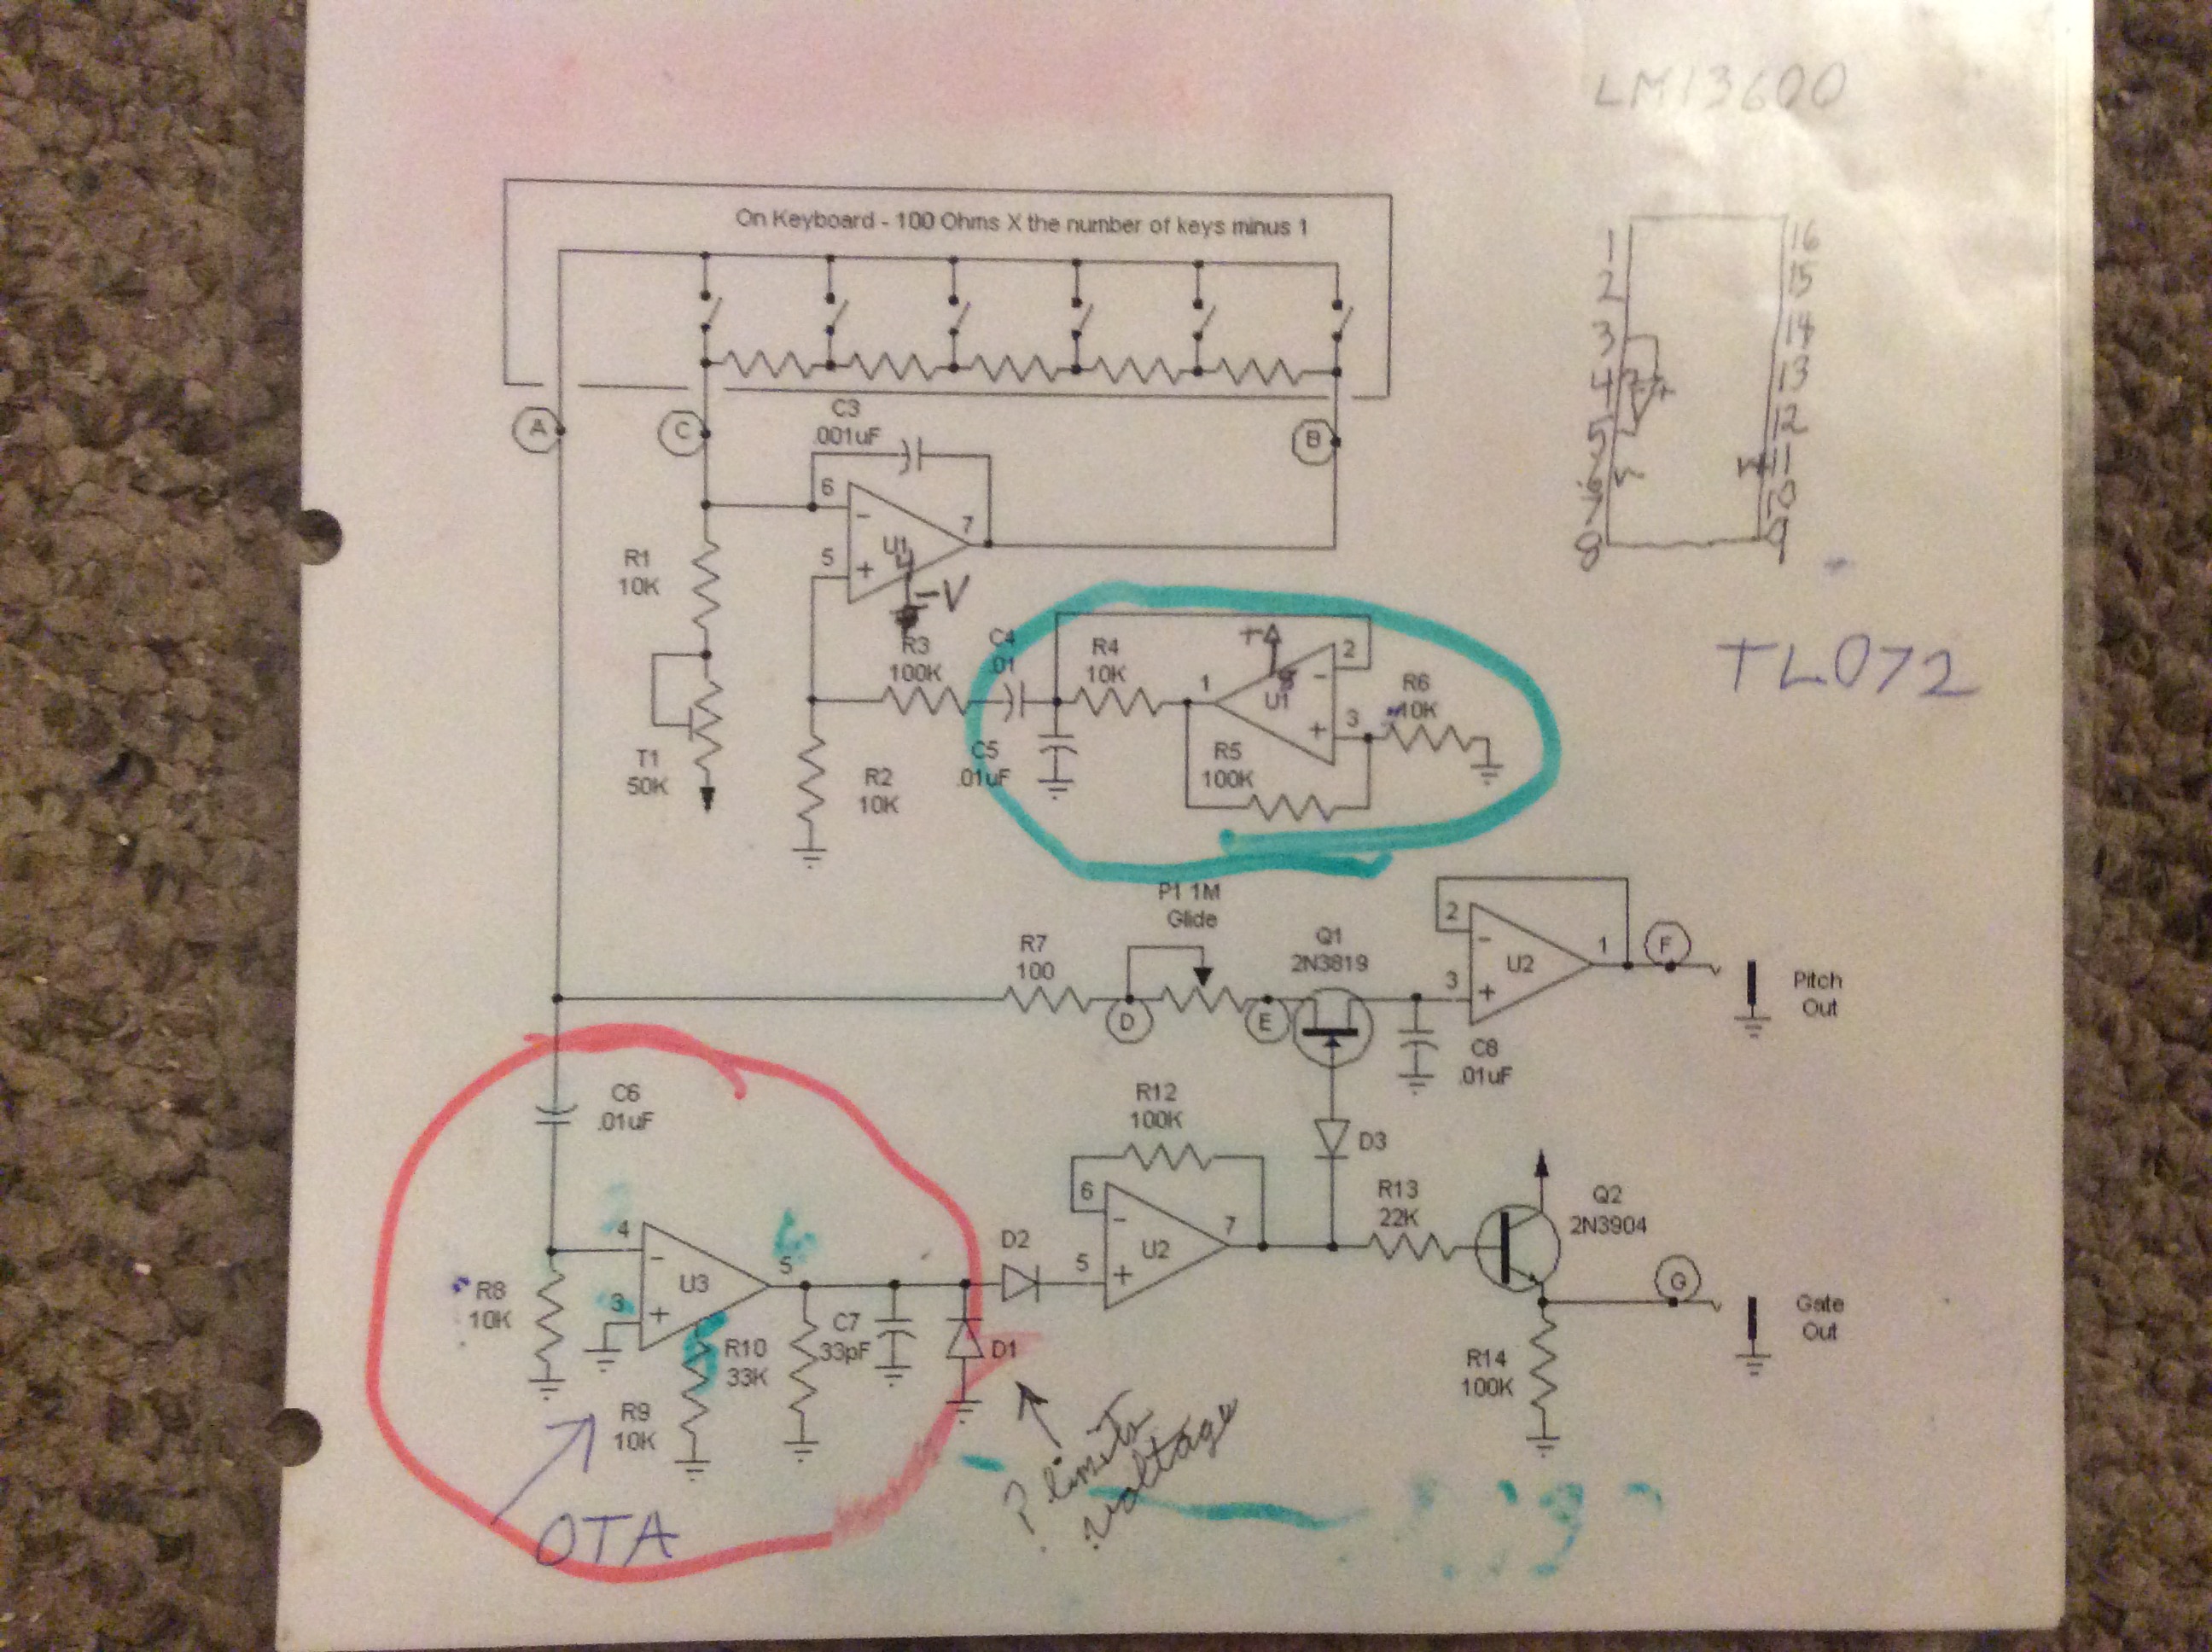 LM13600
On Keyboard - 100 Ohms X the number of keys minus 1
1
16
2
15
3
14
4
13
5
12
6
11
7
10
8
9
A
C
B
C3
.001uF
6
-
7
U1
4
5
+
-V
R1
10K
R3
100K
C4
.01
R4
10K
+
8
2
-
1
U1
R6
10K
3
+
TL072
T1
50K
R2
10K
C5
.01uF
R5
100K
P1 1M
Glide
R7
100
Q1
2N3819
2
-
U2
1
F
3
+
D
E
Pitch
Out
C8
.01uF
C6
.01uF
R12
100K
D3
4
-
U3
5
3
+
D2
6
-
U2
7
5
+
R13
22K
Q2
2N3904
G
Gate
Out
R8
10K
R10
33K
C7
33pF
D1
R9
10K
R14
100K
? limits
voltage
OTA